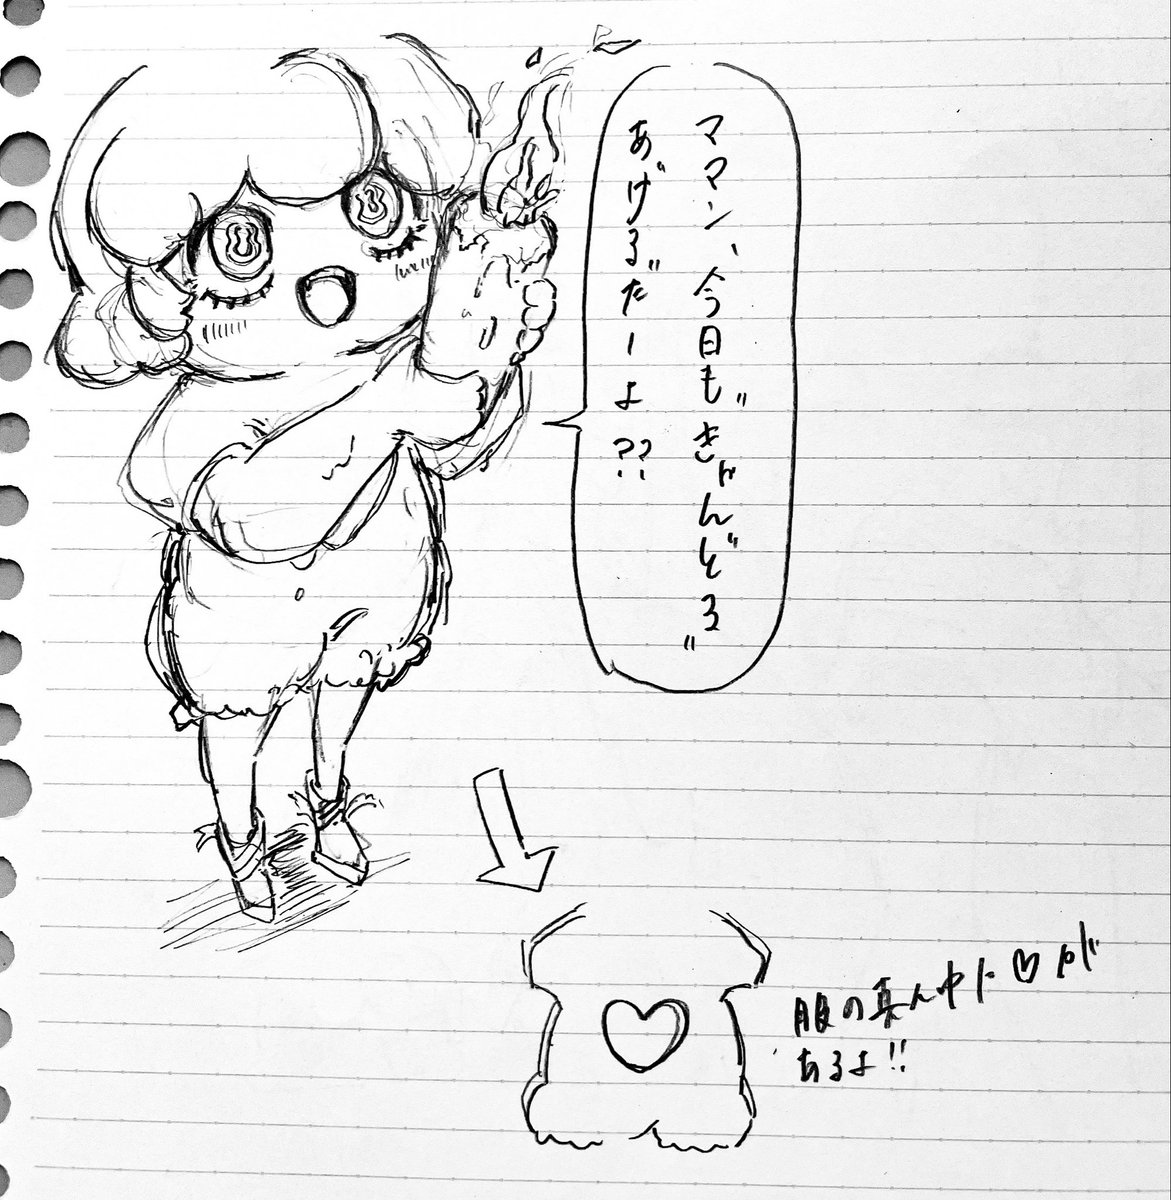 ママン、今日も゛きゃんど゛る゛
あ゛げる゛だーよ??
服の真ん中に♡が
あるよ!!